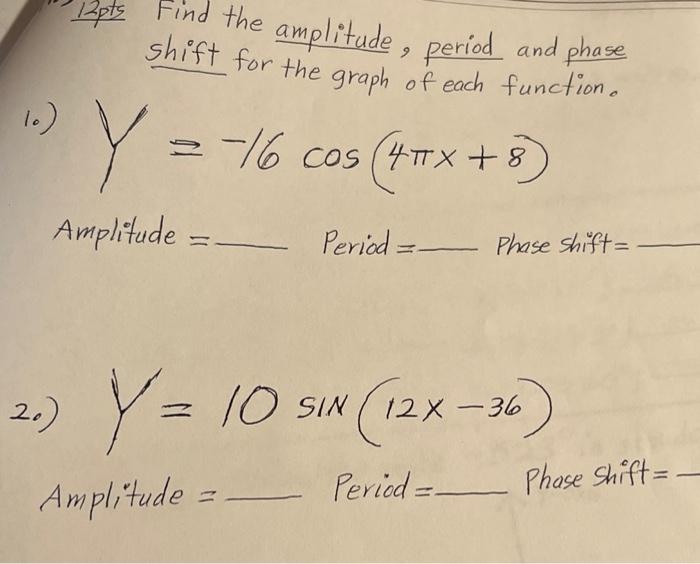 12pts Find the amplitude, period and phase
shift for the graph of each function.
1.) Y = -16 cos (4πx + 8)
Amplitude = ____ Period = ____ Phase shift = ____
2.) Y = 10 SIN (12x - 36)
Amplitude = ____ Period = ____ Phase Shift = __